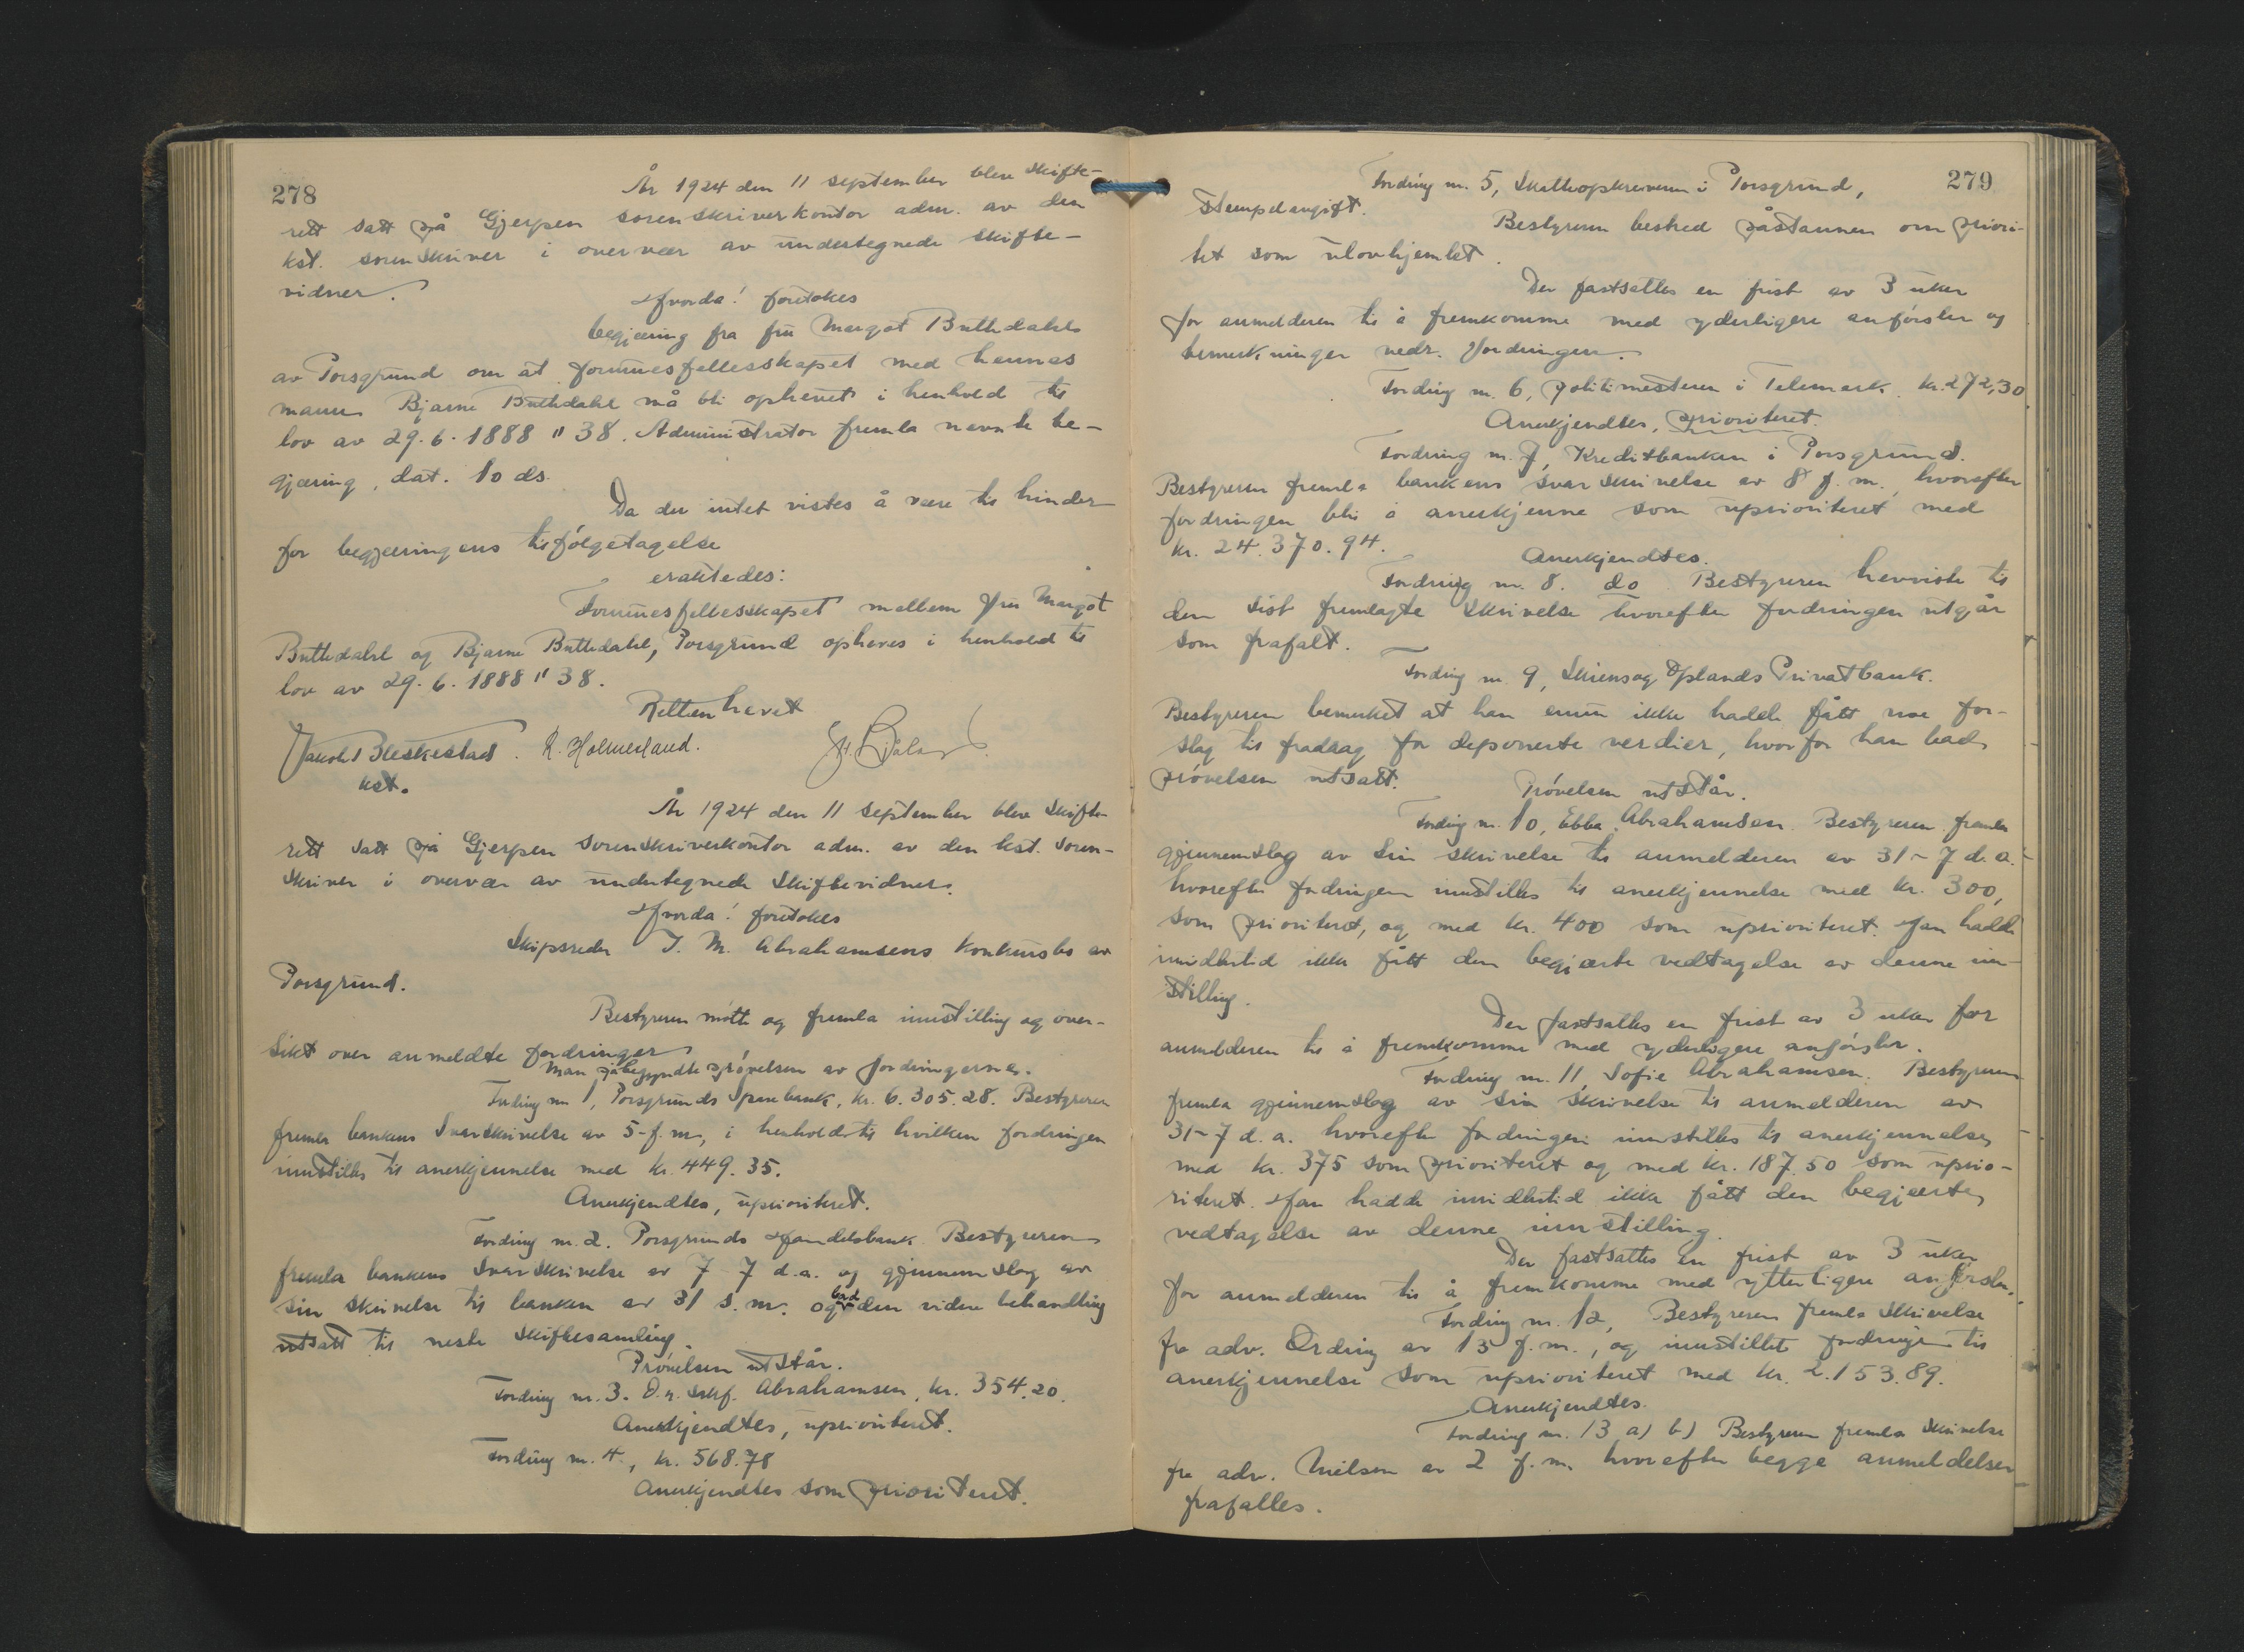 278
År 1924 den 11 september blev skifte-
rett satt på Gjerpen sorenskriverkontor adm. av den
kst. sorenskriver i overvær av undertegnede skifte-
vidner.
Hvorda! foretokes
begjæring fra fru Margot Buttedahl
av Porsgrund om at formuesfellesskapet med hennes
mann Bjarne Buttedahl må bli ophevet i henhold til
lov av 29.6.1888 " 38. Administrator fremla nevnte be-
gjæring, dat. 10 ds.
Da der intet vistes å være til hinder
for begjæringens tilfølgetagelse
eraktedes:
Formuesfellesskapet mellem fru Margot
Buttedahl og Bjarne Buttedahl, Porsgrund opheves i henhold til
lov av 29.6.1888 " 38.
Retten hevet
Jakob Bleskestad. K. Holmesland.
kst.
År 1924 den 11 september blev skifte-
rett satt på Gjerpen sorenskriverkontor adm. av den kst. soren-
skriver i overvær av undertegnede skiftevidner.
Hvorda! foretokes
Skipsreder J. M. Abrahamsens konkursbo av
Porsgrund.
Bestyreren møtte og fremla innstilling og over-
sikt over anmeldte fordringer
Man påbegyndte prøvelsen av fordringerne.
Fordring nr 1, Porsgrunds Sparebank, kr. 6.305.28. Bestyreren
fremla bankens svarskrivelse av 5 f.m., i henhold til hvilken fordringen
innstilles til anerkjennelse med kr. 449.35.
Anerkjendtes, uprioriteret.
Fordring nr. 2. Porsgrunds Handelsbank. Bestyreren
fremla bankens svarskrivelse av 7-7 d.a. og gjennemslag av
sin skrivelse til banken av 31 s.m. og bad den videre behandling
utsatt til neste skiftesamling.
Prøvelsen utstår.
Fordring nr. 3. O.r. sakf. Abrahamsen, kr. 354.20.
Anerkjendtes, uprioriteret.
Fordring nr. 4., kr. 568.78
Anerkjendtes som prioriteret.
279
Fordring nr. 5, Skatteopkreveren i Porsgrund,
Stempelavgift.
Bestyreren bestred påstannen om priori-
tet som ulovhjemlet.
Der fastsattes en frist av 3 uker
for anmelderen til å fremkomme med yderligere anførsler og
bemerkninger vedr. fordringen.
Fordring nr. 6, politimesteren i Telemark. kr. 272,30
Anerkjendtes, prioriteret.
Fordring nr. 7, Kreditbanken i Porsgrund.
Bestyreren fremla bankens svarskrivelse av 8 f.m., hvorefter
fordringen blir å anerkjenne som uprioriteret med
kr. 24.370.94.
Anerkjendtes.
Fordring nr. 8. do Bestyreren henviste til
den sist fremlagte skrivelse hvorefter fordringen utgår
som frafalt.
Fordring nr. 9, Skiens og Oplands Privatbank.
Bestyreren bemerket at han ennu ikke hadde fått noe for-
slag til fradrag for deponerte verdier, hvorfor han bad
prøvelsen utsatt.
Prøvelsen utstår.
Fordring nr. 10, Ebba Abrahamsen. Bestyreren fremla
gjennemslag av sin skrivelse til anmelderen av 31-7 d.a.
hvorefter fordringen innstilles til anerkjennelse med kr. 300,
som prioriteret, og med kr. 400 som uprioriteret. Han hadde
imidlertid ikke fått den begjærte vedtagelse av denne inn-
stilling.
Der fastsattes en frist av 3 uker for
anmelderen til å fremkomme med yderligere anførsler.
Fordring nr. 11, Sofie Abrahamsen. Bestyreren
fremla gjennemslag av sin skrivelse til anmelderen av
31-7 d.a. hvorefter fordringen innstilles til anerkjennelse
med kr. 375 som prioriteret og med kr. 187.50 som uprio-
riteret. Han hadde imidlertid ikke fått den begjærte
vedtagelse av denne innstilling.
Der fastsattes en frist av 3 uker
for anmelderen til å fremkomme med ytterligere anførsler.
Fordring nr. 12, Bestyreren fremla skrivelse
fra adv. Ording av 13 f.m., og innstillet fordringen til
anerkjennelse som uprioriteret med kr. 2.153.89.
Anerkjendtes.
Fordring nr. 13 a) b) Bestyreren fremla skrivelse
fra adv. Nielsen av 2 f.m. hvorefter begge anmeldelser
frafalles.